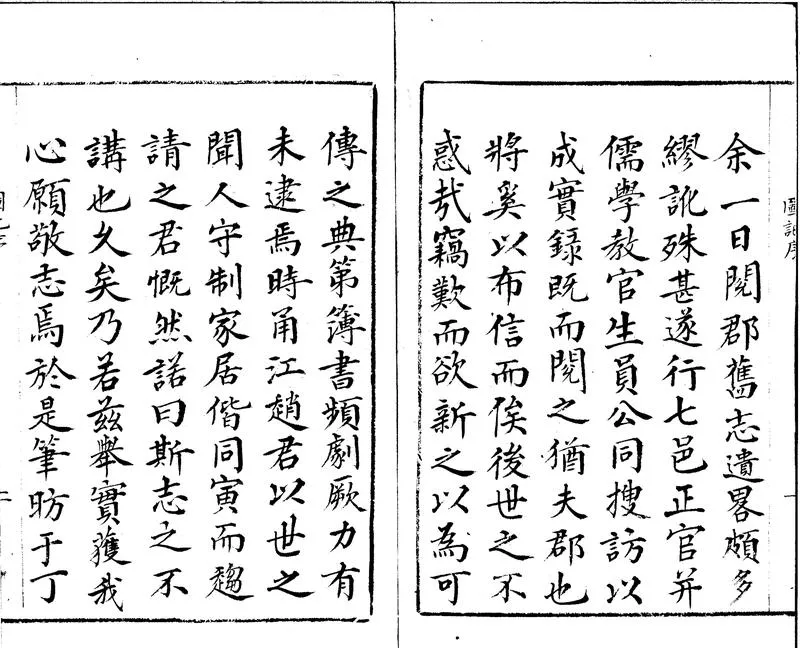 余一日閱郡舊志遺畧頗多
繆訛殊甚遂行七邑正官并
儒學教官生員公同搜訪以
成實錄既而閱之猶夫郡也
將奚以布信而俟後世之不
惑哉竊歎而欲新之以為可
傳之典第簿書頻劇厥力有
未逮焉時甬江趙君以世之
聞人守制家居偕同寅而趨
請之君慨然諾曰斯志之不
講也久矣乃若茲舉實獲我
心願敬志焉於是筆昉于丁